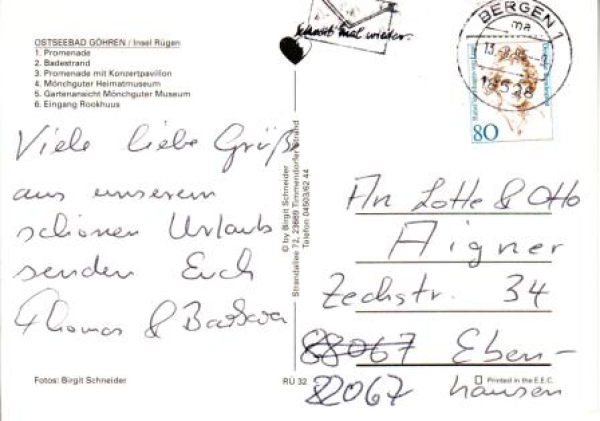 OSTSEEBAD GÖHREN / Insel Rügen
1. Promenade
2. Badestrand
3. Promenade mit Konzertpavillon
4. Mönchguter Heimatmuseum
5. Gartenansicht Mönchguter Museum
6. Eingang Rookhuus
Schreib mal wieder.
BERGEN 1
18528
80
Viele liebe Grüße
aus unserem
schönen Urlaub
senden Euch
Thomas & Barbara
© by Birgit Schneider
Strandallee 72, 23669 Timmendorfer Strand
Telefon 04503/62 44
An Lotte & Otto
Aigner
Zechstr. 34
88067 Eben-
82067 hausen
Fotos: Birgit Schneider
RÜ 32
Printed in the E.E.C.